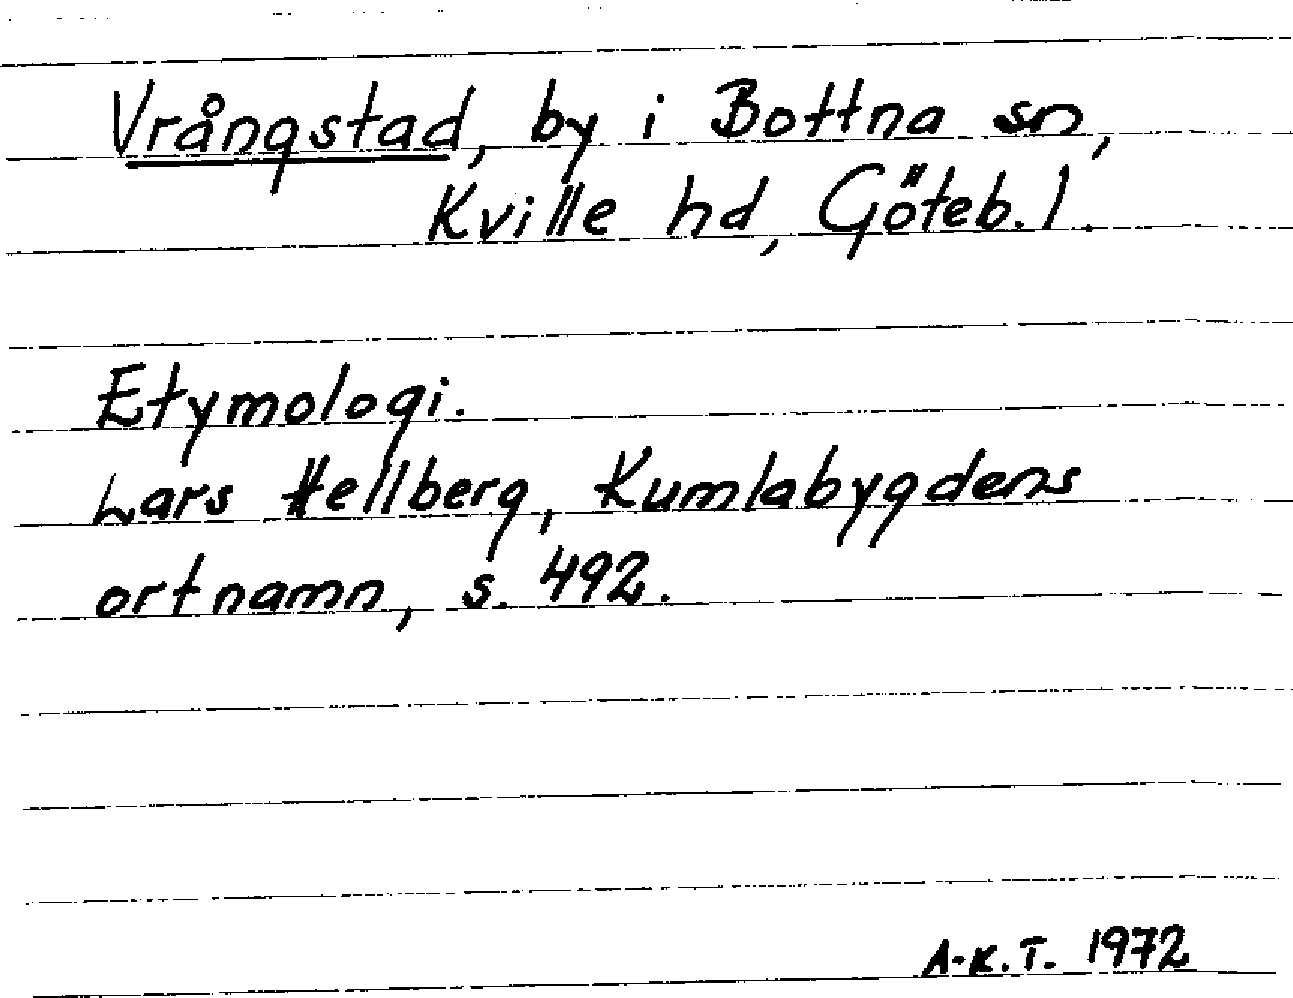 Vrångstad, by i Bottna sn,
Kville hd, Göteb. l.
Etymologi.
Lars Hellberg, Kumlabygdens
ortnamn, s. 492.
A-K.T. 1972